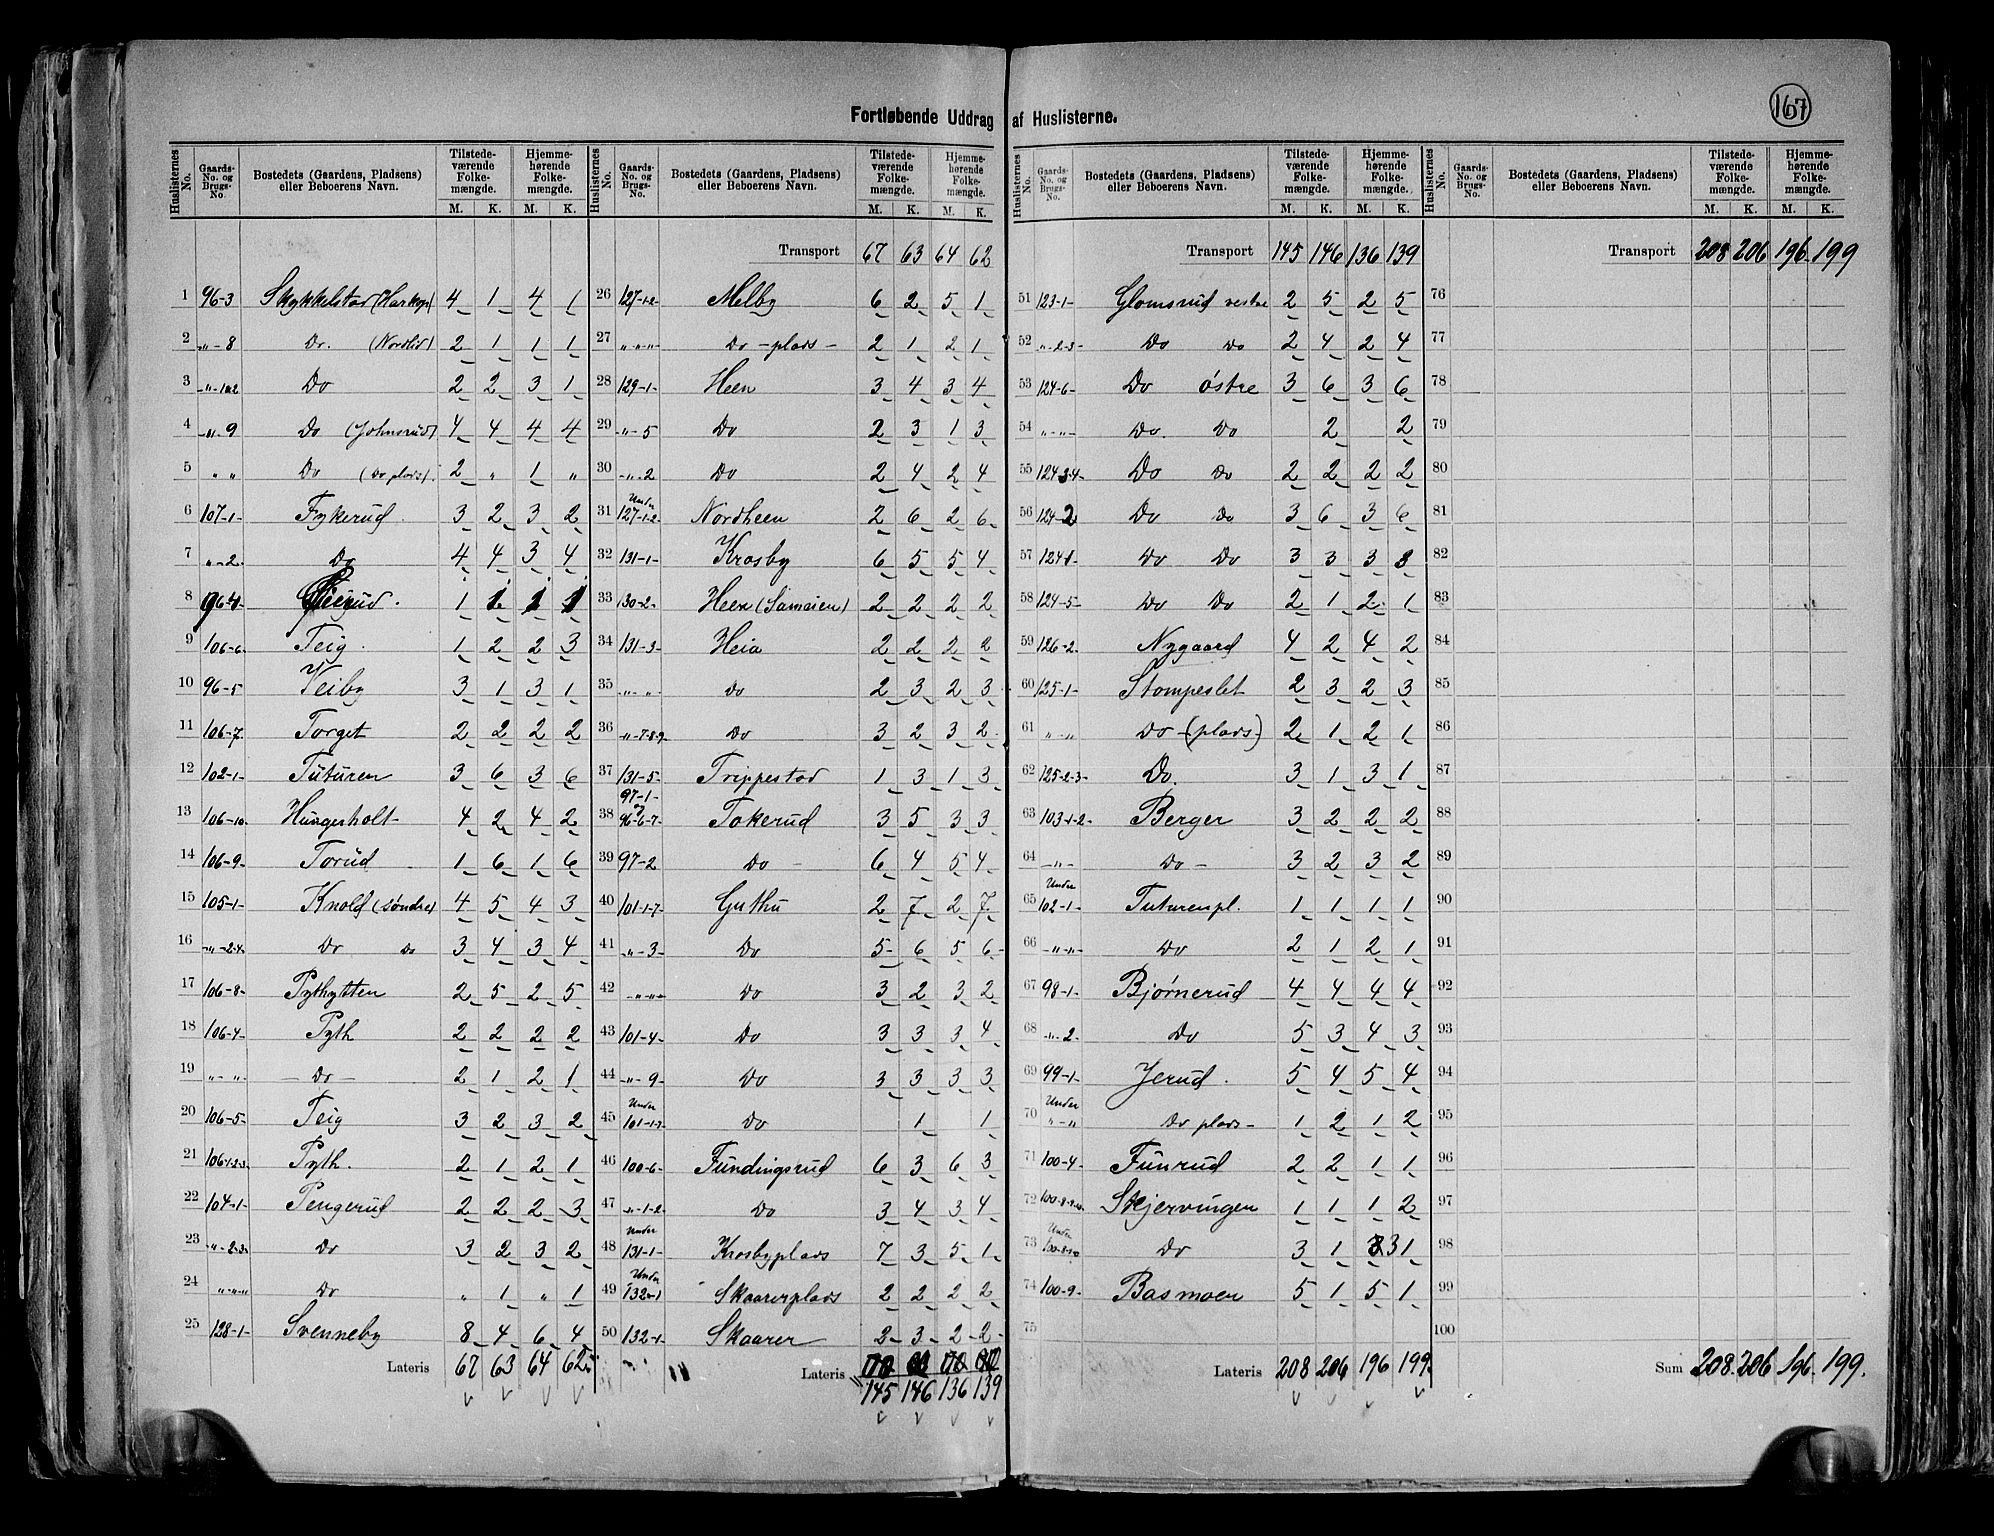 167
Fortløbende Uddrag af Huslisterne.
Huslisternes No. | Gaards-No. og Brugs-No. | Bostedets (Gaardens, Pladsens) eller Beboerens Navn. | Tilstedeværende Folkemængde. M. K. | Hjemmehørende Folkemængde. M. K.
1 96-3 Skykkelstad (Harkop) 4 1 4 1
2 „-8 Do. (Nordlid) 2 1 1 1
3 Do 2 2 3 1
4 „-9 Do (Johnsrud) 4 4 4 4
5 „ „ Do (Do plads) 2 „ 1 „
6 107-1 Fykerud 3 2 3 2
7 „-2 Do 4 4 3 4
8 1 1 1 1
9 106-6 Teig 1 2 2 3
10 96-5 Veiby 3 1 3 1
11 106-7 Torget 2 2 2 2
12 102-1 Tuturen 3 6 3 6
13 106-10 Hungerholt 4 2 4 2
14 106-9 Torud 1 6 1 6
15 105-1 Knold (søndre) 4 5 4 3
16 „-2-4 Do Do 3 4 3 4
17 106-8 Pythytten 2 5 2 5
18 106-4 Pyth 2 2 2 2
19 „-„ Do 2 1 2 1
20 106-5 Teig 3 2 3 2
21 106-1-2-3 Pyth. 2 1 2 1
22 104-1 Pengerud 2 2 2 3
23 „-2-3 Do 3 2 3 2
24 „-„-„ Do „ 1 „ 1
25 128-1 Svenneby 8 4 6 4
Lateris 67 63 64 62
Huslisternes No. | Gaards-No. og Brugs-No. | Bostedets (Gaardens, Pladsens) eller Beboerens Navn. | Tilstedeværende Folkemængde. M. K. | Hjemmehørende Folkemængde. M. K.
Transport 67 63 64 62
26 127-1-2 Melby 6 2 5 1
27 „-„-„ Do-plads- 2 1 2 1
28 129-1- Heen 3 4 3 4
29 „-5 Do 2 3 1 3
30 „-2 Do 2 4 2 4
31 Under 127-1-2 Nordheen 2 6 2 6
32 131-1- Krosby 6 5 5 4
33 130-2- Heen (Samsien) 2 2 2 2
34 131-3- Heia 2 2 2 2
35 „-„- Do 2 3 2 3
36 „-7-8-9 Do 3 2 3 2
37 131-5- Trippestad 1 3 1 3
38 97-1- og 96-6-7- Tokerud 3 5 3 3
39 97-2 Do 6 4 5 4
40 101-1-7- Guthu 2 7 2 7
41 „-3- Do 5 6 5 6
42 „-„- Do 3 2 3 2
43 101-4- Do 3 3 3 4
44 „-9- Do 3 3 3 3
45 Under 101-1-7 Do 1 1
46 100-6- Fundingsrud 6 3 6 3
47 „-1-2- Do 3 4 3 4
48 Under 131-1- Krosbyplads 7 3 5 1
49 Under 132-1 Skaarerplads 2 2 2 2
50 132-1- Skaarer 2 3 2 2
Lateris
145 146 136 139
Huslisternes No. | Gaards-No. og Brugs-No. | Bostedets (Gaardens, Pladsens) eller Beboerens Navn. | Tilstedeværende Folkemængde. M. K. | Hjemmehørende Folkemængde. M. K.
Transport 145 146 136 139
51 123-1- Glomsrud vestre 2 5 2 5
52 „-2-3- Do Do 2 4 2 4
53 124-6- Do østre 3 6 3 6
54 „-„- Do. Do 2 2
55 124-3-4- Do Do 2 2 2 2
56 124-2 Do Do 3 6 3 6
57 124-1 Do Do 3 3 3 3
58 124-5- Do Do 2 1 2 1
59 126-2- Nygaard 4 2 4 2
60 125-1- Stompeslet 2 3 2 3
61 „-„- Do-(plads-) 2 1 2 1
62 125-2-3- Do. 3 1 3 1
63 103-1-2- Berger 3 2 2 2
64 -„- Do- 3 2 3 2
65 Under 102-1- Tuturenpl. 1 1 1 1
66 -„-„- Do 2 1 2 1
67 98-1- Bjørnerud 4 4 4 4
68 „-2 Do 5 3 4 3
69 99-1- Jerud. 5 4 5 4
70 Under „-„ Do plads- 1 2 1 2
71 100-4- Funrud 2 2 1 1
72 100-8-9-10 Skjervingen 1 1 1 2
73 Under 100-8-10 Do 3 1 3 1
74 100-9- Basmoen 5 1 5 1
75
Lateris 208 206 196 199.
Huslisternes No. | Gaards-No. og Brugs-No. | Bostedets (Gaardens, Pladsens) eller Beboerens Navn. | Tilstedeværende Folkemængde. M. K. | Hjemmehørende Folkemængde. M. K.
Transport 208 206 196 199
76
77
78
79
80
81
82
83
84
85
86
87
88
89
90
91
92
93
94
95
96
97
98
99
100
Sum 208. 206 196. 199.